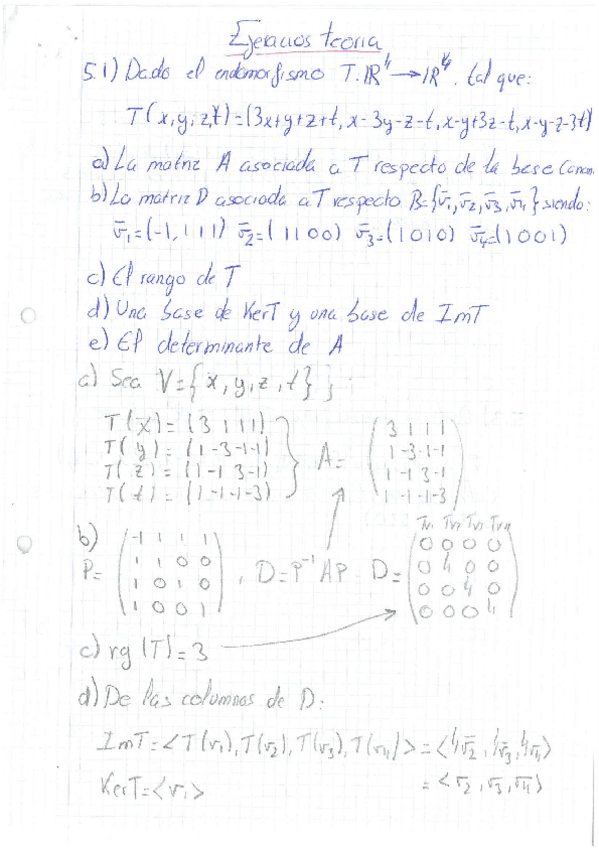 Ejercicios teoria
5.1) Dado el endomorfismo T: ℝ⁴→ℝ⁴. tal que:
T(x,y,z,t)=(3x+y+z+t, x-3y-z-t, x-y+3z-t, x-y-z-3t)
a) La matriz A asociada a T respecto de la base Canon
b) La matriz D asociada a T respecto B={v̄₁,v̄₂,v̄₃,v̄₄} siendo:
v̄₁=(-1, 1 1 1) v̄₂=( 1 1 0 0) v̄₃=(1 0 1 0) v̄₄=(1 0 0 1)
c) El rango de T
d) Una base de KerT y una base de ImT
e) El determinante de A
a) Sea V={x, y, z, t}
T(x)=(3 1 1 1)
T(y)=(1 -3 -1 -1)
T(z)=(1 -1 3 -1)
T(t)=(1 -1 -1 -3)
A=
3 1 1 1
1 -3 -1 -1
1 -1 3 -1
1 -1 -1 -3
b)
P=
-1 1 1 1
1 1 0 0
1 0 1 0
1 0 0 1
, D=P⁻¹AP
D=
Tv₁ Tv₂ Tv₃ Tv₄
0 0 0 0
0 4 0 0
0 0 4 0
0 0 0 4
c) rg(T)=3
d) De las columnas de D:
ImT=<T(v₁), T(v₂), T(v₃), T(v₄)>=<4v̄₂, 4v̄₃, 4v̄₄>
KerT=<v₁> =<v₂, v₃, v₄>